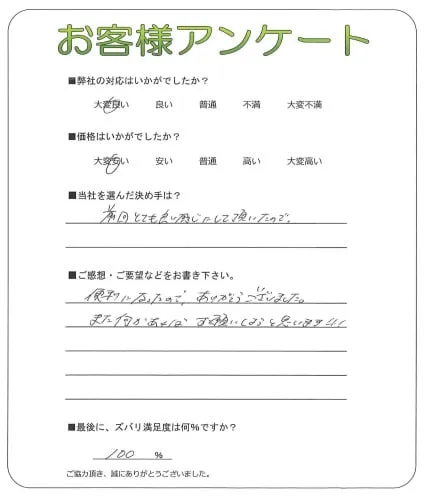 お客様アンケート
■弊社の対応はいかがでしたか？
大変良い 良い 普通 不満 大変不満
■価格はいかがでしたか？
大変安い 安い 普通 高い 大変高い
■当社を選んだ決め手は？
前回とても良い感じにして頂いたので、
■ご感想・ご要望などをお書き下さい。
便利になったので、ありがとうございました。
また何かあれば お願いしようと思います!!!
■最後に、ズバリ満足度は何%ですか？
100 %
ご協力頂き、誠にありがとうございました。